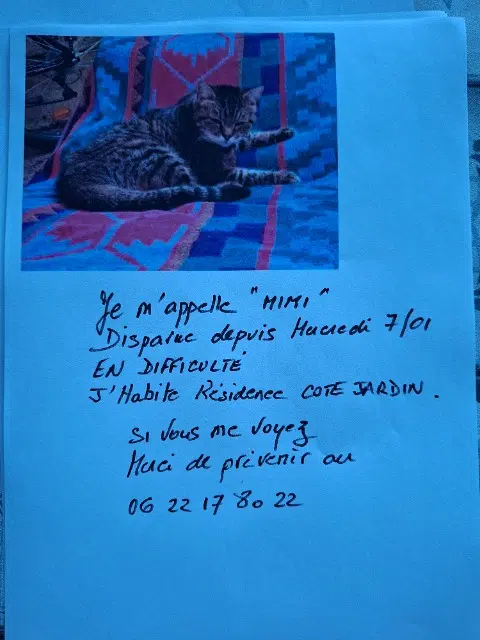 Je m'appelle "MIMI"
Disparue depuis Mercredi 7/01
EN DIFFICULTÉ
J'Habite Résidence COTE JARDIN.
SI vous me voyez
Merci de prévenir au
06 22 17 80 22